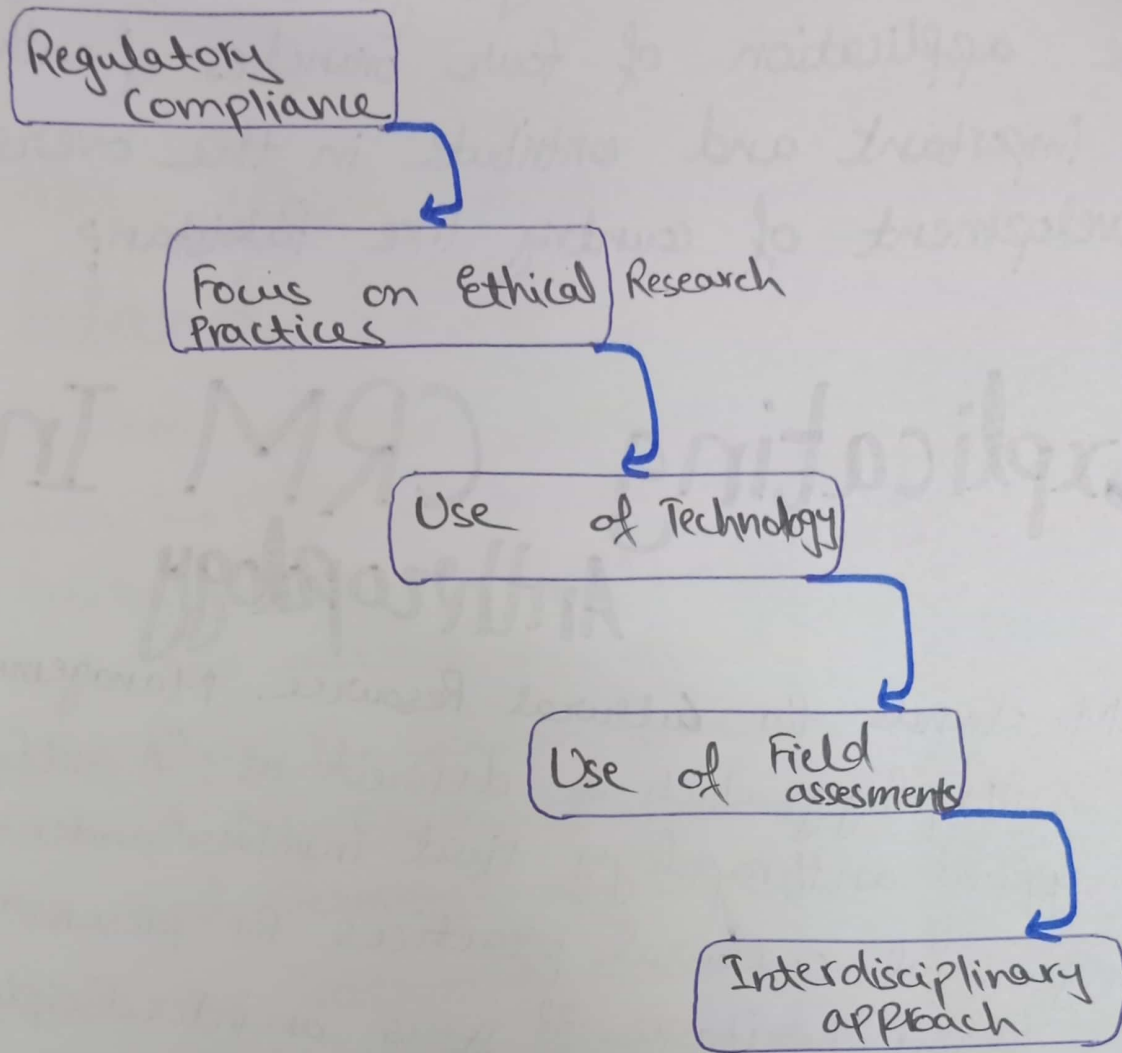 Regulatory
Compliance
Focus on Ethical Research
Practices
Use of Technology
Use of Field
assesments
Interdisciplinary
approach